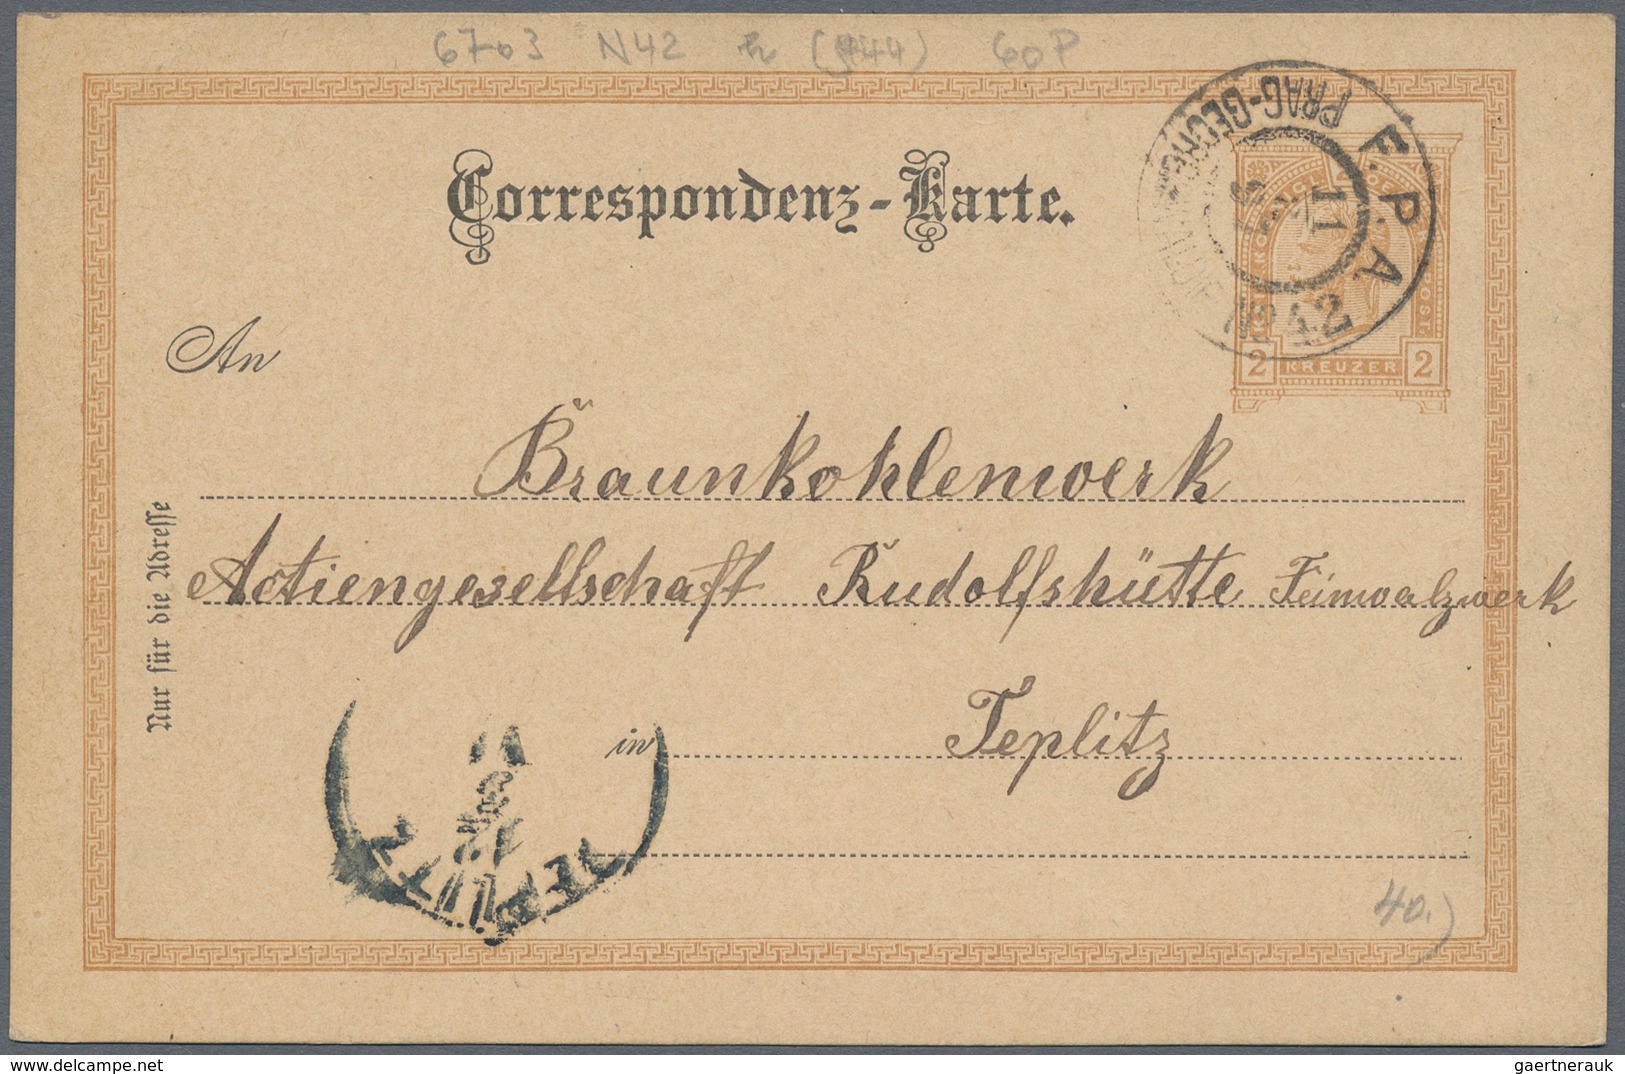 6703 N42 (144) 60P
Correspondenz-Karte.
F.P.A.
No 42
11
2 KREUZER 2
An
Braunkohlenwerk
Actiengesellschaft Rudolfshütte Feinwalzwerk
in Teplitz
Nur für die Adresse
40.)
gaertnerauk